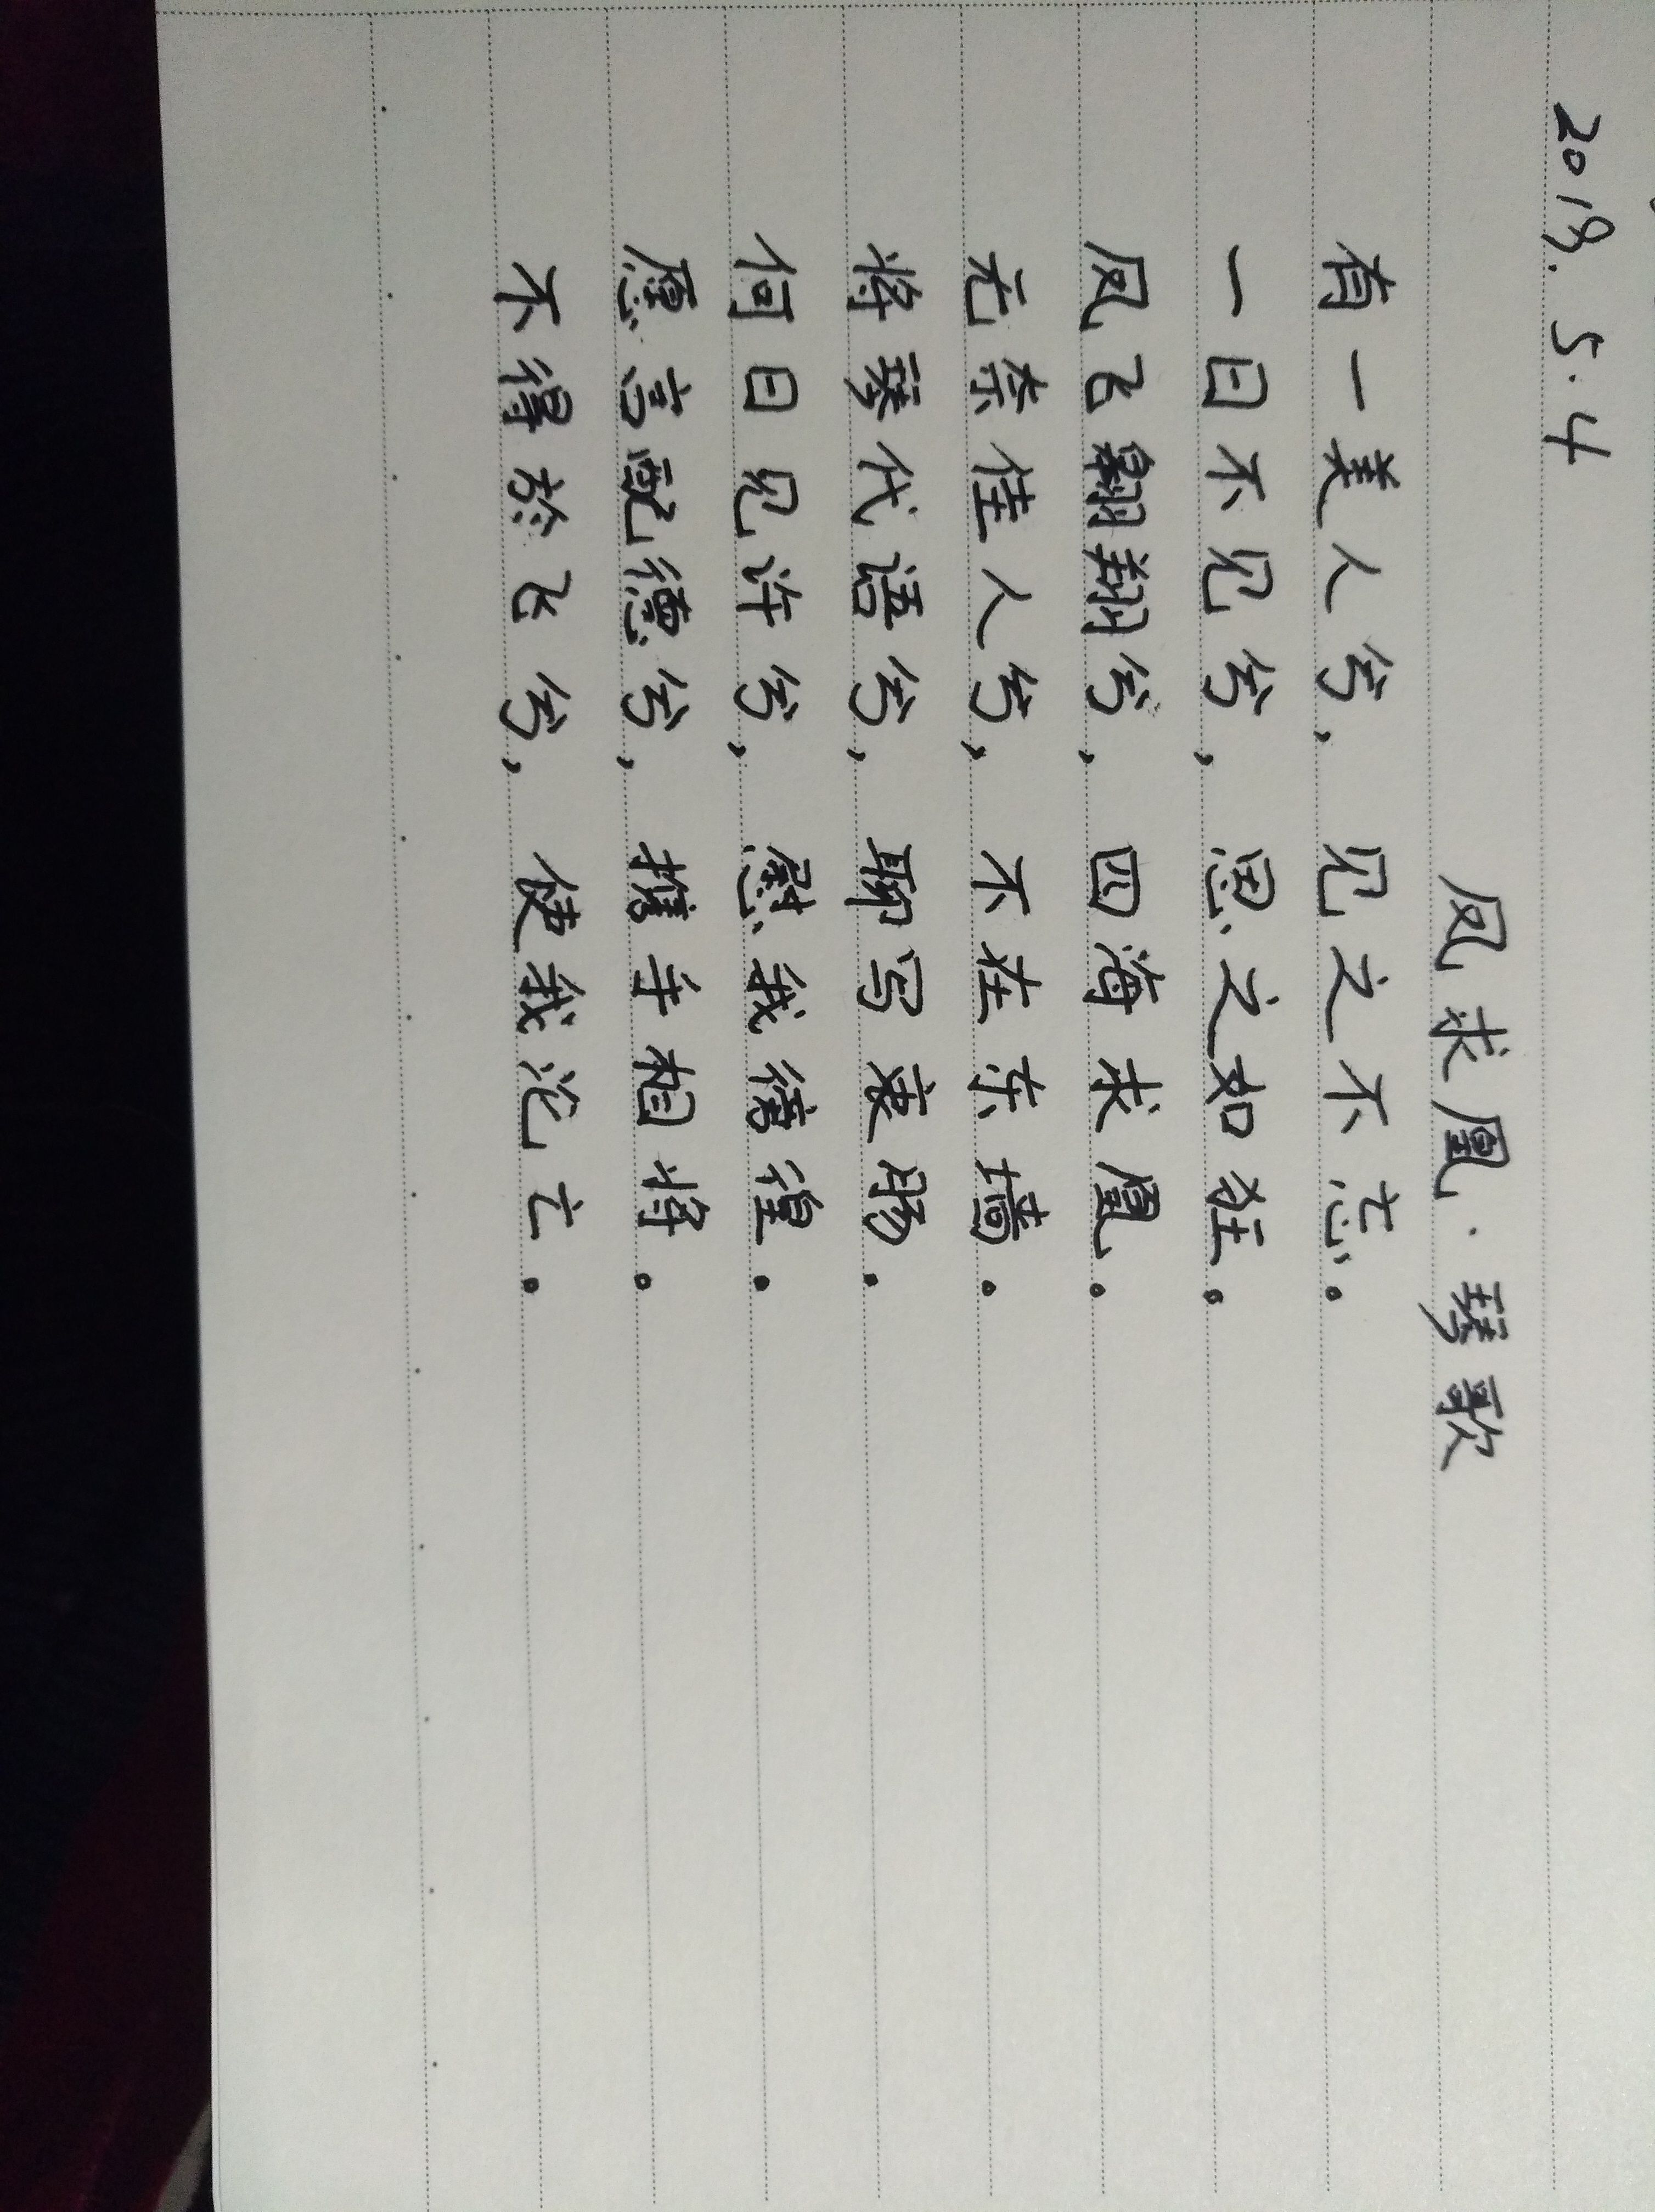 2019.5.4
凤求凰·琴歌
有一美人兮，见之不忘。
一日不见兮，思之如狂。
凤飞翱翔兮，四海求凰。
无奈佳人兮，不在东墙。
将琴代语兮，聊写衷肠。
何日见许兮，慰我徬徨。
愿言配德兮，携手相将。
不得於飞兮，使我沦亡。